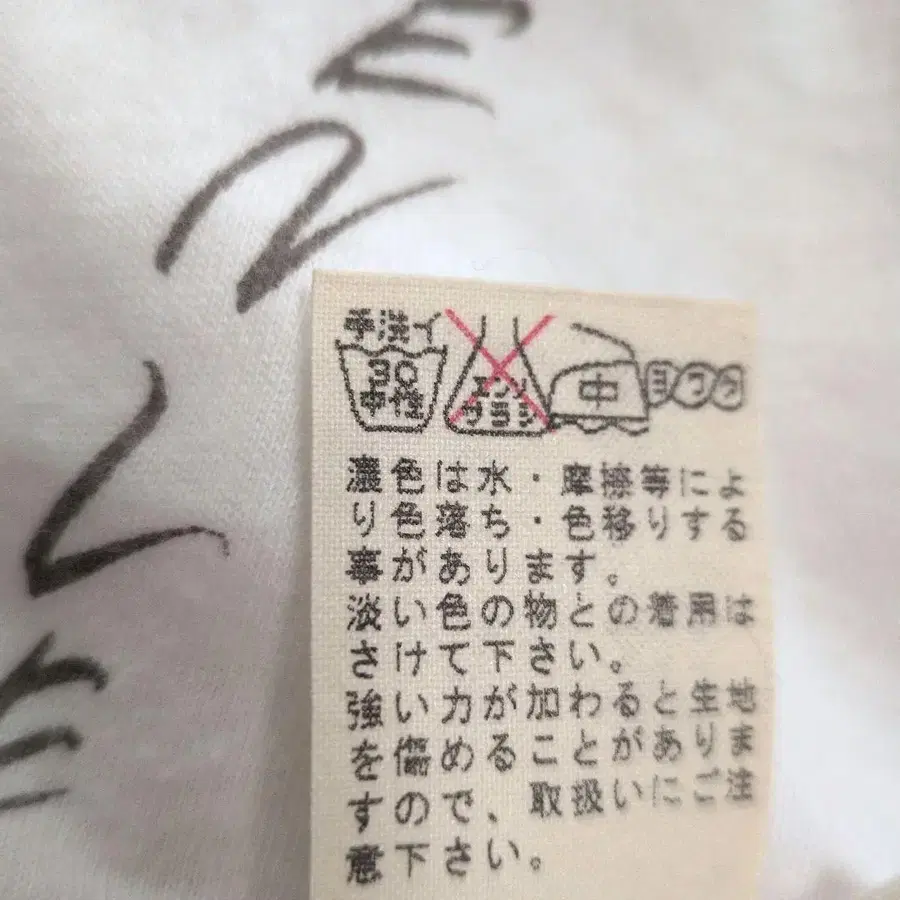 手洗イ
30
中性
エンソ
サラシ
中
濃色は水・摩擦等によ
り色落ち・色移りする
事があります。
淡い色の物との着用は
さけて下さい。
強い力が加わると生地
を傷めることがありま
すので、取扱いにご注
意下さい。